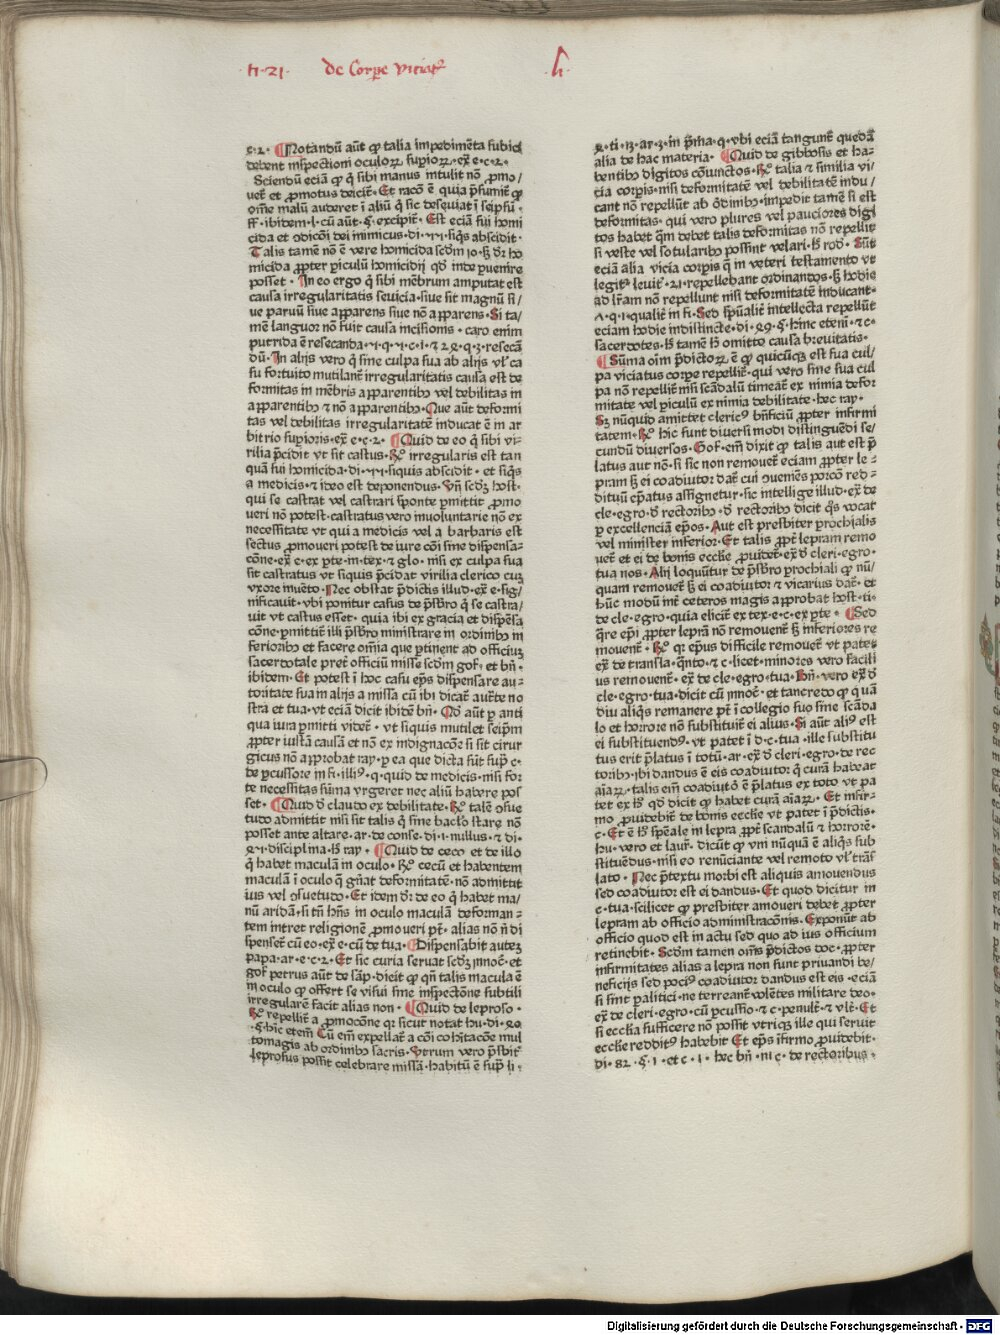 ti·21· de Corpe viciat҉ ·li·
e·2· ¶Notandū aūt ꝙ talia impedimēta subici
debent inspectioni oculoꝝ supioꝝ·ex̄ e·c·2·
Sciendū eciā ꝙ q̄ sibi manus intulit nō ꝓmo/
uet̄ et ꝓmotus deicit̄· Et racō ē quia p̄sumit̄ ꝙ
om̄e malū auderet ī aliū q̄ sic deseuiat ī seipsū·
ff·ibidem·l·cū aūt·§·excipit̄· Est eciā sui homi
cida et ꝯdicōi dei inimicus·di·
Talis tamē nō ē vere homicida scdm io·ꝫ dr̄ ho
micida ꝓpter piculū homicidij qd̄ inde puenire
posset· In eo ergo q̄ sibi mēbrum amputat est
causa irregularitatis seuicia·siue sit magnū si/
ue paruū siue apparens siue nō apparens·Si ta
mē languor nō fuit causa incisionis·caro enim
putrida ē resecanda
dū·In alijs vero q̄ sine culpa sua ab alijs vl̓ ca
su fortuito mutilant̄ irregularitatis causa est de
formitas in mēbris apparentibꝰ vel debilitas in
apparentibꝰ ⁊ nō apparentibꝰ·Que aūt deformi
tas vel debilitas irregularitatē inducat ē in ar
bitrio supioris·ex̄ e·c·2· ¶Quid de eo q̄ sibi vi-
rilia p̄cidit vt sit castus· Rꝰ irregularis est tan
quā sui homicida·di··siquis abscidit·et siq̄s
a medicis·⁊ ideo est deponendus·Vn̄ scdꝫ host·
qui se castrat vel castrari sponte pmittit ꝓmo
ueri nō potest·castratus vero inuoluntarie nō ex
necessitate vt qui a medicis vel a barbaris est
sectus ꝓmoueri potest de iure cōi sine dispensa-
cōne·ex̄ e·c·ex pte·in·tex·⁊ glo·nisi ex culpa sua
sit castratus vt siquis p̄cidat virilia clerico cuꝫ
vxore inuēto·Nec obstat p̄dictis illud·ex̄ e·sig/
nificauit·vbi ponitur casus de p̄sbr̄o q̄ se castra/
uit vt castus esset·quia ibi ex gracia et dispēsa
cōne·pmittit̄ illi p̄sbr̄o ministrare in ordinibꝰ in
ferioribꝰ et facere om̄ia que ptinent ad officiuꝫ
sacerdotale preter̄ officiū misse scdm gof·et bn̄·
ibidem·Et potest ī hoc casu ep̄s dispensare au-
toritate sua in alijs a missa cū ibi dicat̄ auꝭte no
stra et tua·vt eciā dicit ibidē bn̄·Qd̄ aūt p anti
qua iura pmitti videt̄·vt siquis mutilet seip̄m
ꝓpter iustā causā et nō ex indignacōe si sit cirur
gicus nō approbat ray·p ea que dicta sūt sup̄ c·
de pcussore in fi·illiꝰ·q·quid de medicis·nisi for
te necessitas sūma vrgeret nec aliū habere pos
set· ¶Quid d̓ claudo ex debilitate·Rꝰ talē ꝯsue
tudo admittit nisi sit talis q̄ sine baclo stare nō
posset ante altare·ar·de conse·di·1·nullus·⁊ di·
·disciplina·h̄ ray· ¶Quid de ceco et de illo
q̄ habet maculā in oculo·Rꝰ cecū et habentem
maculā ī oculo q̄ gn̄at deformitatē·nō admittit
ius vel ꝯsuetudo·Et idem dr̄·de eo q̄ habet ma/
nū aridā·si tn̄ hn̄s in oculo maculā deforman-
tem intret religionē ꝓmoueri pt̄·alias nō n̄ di
spenset̄ cū eo·ex̄ e·cū de tua·¶Dispensabit autez
papa·ar·e·c·2·Et sic curia seruat scdꝫ ȷnnoc̄·et
gof petrus aūt de sāp·dicit ꝙ qn̄ talis macula ē
in oculo ꝙ offert se visui sine inspectōne subtili
irregularē facit alias non· ¶Quid de leproso·
Rꝰ repellit̄ a ꝓmocōne qr sicut notat hu·di·
·§·hic etem̄ Cū em̄ expellat̄ a cōi cohitacōne mul
tomagis ab ordinibꝰ sacris·Vtrum vero p̄sbit̄
leprosus possit celebrare missā·habitū ē sup̄ li-
·ti··ar·3·in p̄ma·q·vbi eciā tangunt̄ quedā
alia de hac materia· ¶Quid de gibbosis et ha-
bentibꝰ digitos cōiunctos·Rꝰ talia ⁊ similia vi/
cia corpis·nisi deformitatē vel debilitatē indu/
cant nō repellūt ab ōdinibꝰ·impedit tamē si est
deformitas·qui vero plures vel pauciores digi
tos habet q̄m debet talis deformitas nō repellit
si veste vel sotularibꝰ possint velari·h̄ rod· Sūt
eciā alia vicia corpis q̄ in veteri testamento vt
legit̄ leuit̄·21·repellebant ordinandos·ꝫ hodie
ad lr̄am nō repellunt nisi deformitatē inducant·
·q·1·qualit̄ in fi·Sed spūalit̄ intellecta repellūt
eciam hodie indistincte·di·49·§·hinc etem̄·⁊c·
sacerdotes·h̄ tamē h̄ omitto causa breuitatis·
¶Sūma oīm p̄dictoꝝ ē ꝙ quicūqꝫ est sua cul/
pa viciatus corpe repellit̄·qui vero sine sua cul
pa nō repellit̄ nisi scādalū timeat̄ ex nimia defor
mitate vel piculū ex nimia debilitate·hec ray·
Sꝫ nūquid amittet clericꝰ bn̄ficiū ꝓpter infirmi
tatem·Rꝰ hic sunt diuersi modi distinguēdi se/
cundū diuersos·Gof·em̄ dixit ꝙ talis aut est p̄
latus aut nō·si sic non remouet̄ eciam ꝓpter le-
pram ꝫ ei coadiutor dat̄ cui ꝯueniēs porcō red-
dituū ep̄atus assignetur·sic intellige illud·ex̄ de
cle·egro·d̓ rectoribꝰ·d̓ rectoribꝰ dicit q̄s vocat
p excellenciā ep̄os·Aut est presbiter prochialis
vel minister inferior·Et talis ꝓpt̄ lepram remo
uet̄ et ei de bonis ecclie ꝓuidet̄·ex̄ d̓ cleri·egro·
tua nos·Alij loquūtur de p̄sbr̄o prochiali ꝙ nū/
quam remouet̄ ꝫ ei coadiutor ⁊ vicarius dat̄·et
hūc modū int̄ ceteros magis approbat host·ti·
de cle·egro·quia elicit̄ ex tex·e·c·ex pte· ¶Sed
q̄re ep̄i ꝓpter leprā nō remouent̄ ꝫ inferiores re
mouent̄· Rꝰ qr ep̄us difficile remouet̄ vt patet
ex̄ de transla·q̄nto·⁊ c·licet·minores vero facili
us remouent̄·ex̄ de cle·egro·tua·Bn̄·vero ex̄ d̓
cle·egro·tua·dicit cū ȷnnoc̄·et tancredo ꝙ quā
diu aliq̄s remanere pt̄ ī collegio suo sine scāda
lo et horrore nō substituit̄ ei alius·Si aūt aliꝰ est
ei substituendꝰ·vt patet ī d·c·tua·ille substitu
tus erit p̄latus ī totū·ar·ex̄ d̓ cleri·egro·de rec
toribꝰ·ibi dandus ē eis coadiutor q̄ curā habeat
aīaꝝ·talis em̄ coadiutō ē p̄latus ex toto vt pa
tet ex h̄ qd̄ dicit ꝙ habet curā aīaꝝ· Et infir-
mo ꝓuidebit̄ de bonis ecclie vt patet ī p̄dictis·
c·Et ē h̄ sp̄eale in lepra ꝓpt̄ scandalū ⁊ horrorē·
hu·vero et laur̄·dicūt ꝙ vni nūquā ē aliq̄s sub
stituēdus·nisi eo renūciante vel remoto vl̓ trās
lato· Nec p̄textu morbi est aliquis amouendus
sed coadiutor est ei dandus·Et quod dicitur in
c·tua·scilicet ꝙ presbiter amoueri debet ꝓpter
lepram ab officio administracōnis·Exponūt ab
officio quod est in actu sed quo ad ius officium
retinebit·Scdm tamen om̄s p̄dictos doc·ꝓpter
infirmitates alias a lepra non sunt priuandi be/
neficijs sed pociꝰ coadiutor dandus est eis·eciā
si sint palitici·ne terreant̄ volētes militare deo·
ex̄ de cleri·egro·cū pcussio·⁊ c·penult̄·⁊ vlt̄·Et
si ecclīa sufficere nō possit vtriqꝫ ille qui seruit
ecclie redditꝰ habebit Et ep̄s īfirmo ꝓuidebit·
di·82·§·1·et c·1·hec bn̄·ni c·de rectoribus·
Digitalisierung gefördert durch die Deutsche Forschungsgemeinschaft - DFG